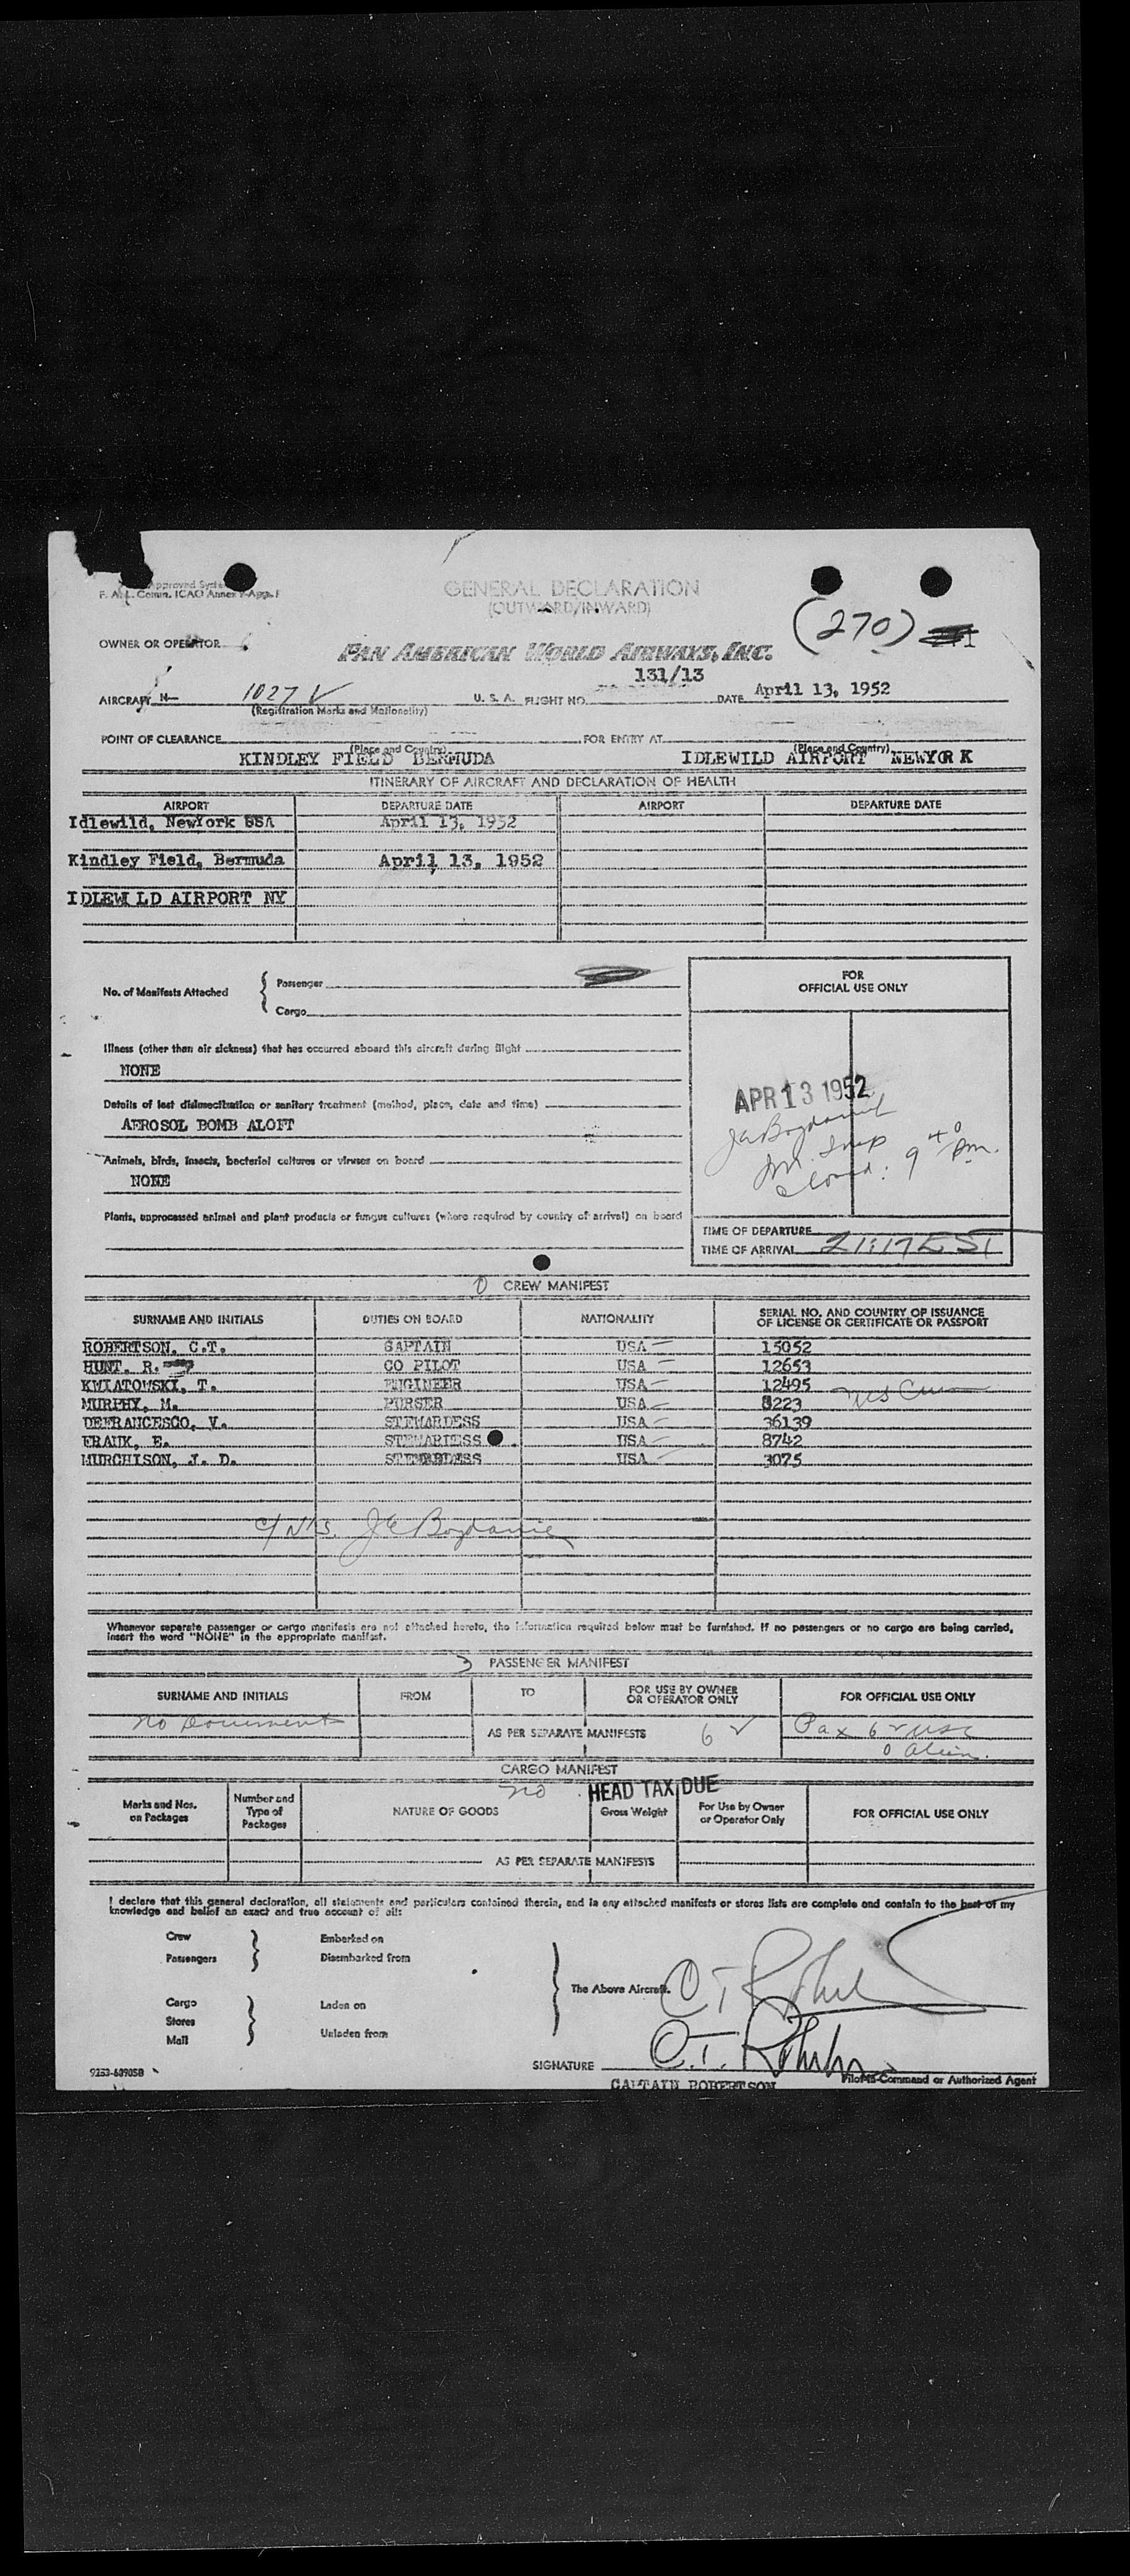 Approved Syste
F. A. L. Comm. ICAO Annex 9-App. 1
GENERAL DECLARATION
(OUTWARD/INWARD)
(270)
OWNER OR OPERATOR
PAN AMERICAN WORLD AIRWAYS, INC.
131/13
AIRCRAFT N— 1027 V U. S. A. FLIGHT NO. DATE April 13, 1952
(Registration Marks and Nationality)
POINT OF CLEARANCE FOR ENTRY AT
(Place and Country) (Place and Country)
KINDLEY FIELD BERMUDA IDLEWILD AIRPORT NEWYORK
ITINERARY OF AIRCRAFT AND DECLARATION OF HEALTH
AIRPORT DEPARTURE DATE AIRPORT DEPARTURE DATE
Idlewild, NewYork USA April 13, 1952
Kindley Field, Bermuda April 13, 1952
IDLEWILD AIRPORT NY
No. of Manifests Attached { Passenger
Cargo
FOR
OFFICIAL USE ONLY
Illness (other than air sickness) that has occurred aboard this aircraft during flight
NONE
Details of last disinsectization or sanitary treatment (method, place, date and time)
AEROSOL BOMB ALOFT
APR 13 1952
Animals, birds, insects, bacterial cultures or viruses on board
NONE
9 40 Pm.
Plants, unprocessed animal and plant products or fungus cultures (where required by country of arrival) on board
TIME OF DEPARTURE
TIME OF ARRIVAL 21:17 EST
CREW MANIFEST
SURNAME AND INITIALS DUTIES ON BOARD NATIONALITY SERIAL NO. AND COUNTRY OF ISSUANCE
OF LICENSE OR CERTIFICATE OR PASSPORT
ROBERTSON, C.T. CAPTAIN USA 15052
HUNT, R. CO PILOT USA 12653
KWIATOWSKI, T. ENGINEER USA 12495
MURPHY, M. PURSER USA 8223
DEFRANCESCO, V. STEWARDESS USA 36139
FRANK, E. STEWARDESS USA 8742
MURCHISON, J. D. STEWARDESS USA 3075
Whenever separate passenger or cargo manifests are not attached hereto, the information required below must be furnished. If no passengers or no cargo are being carried,
insert the word "NONE" in the appropriate manifest.
PASSENGER MANIFEST
SURNAME AND INITIALS FROM TO FOR USE BY OWNER
OR OPERATOR ONLY FOR OFFICIAL USE ONLY
no Documents AS PER SEPARATE MANIFESTS 6 Pax 6 USC
0 alien.
CARGO MANIFEST
no HEAD TAX DUE
Marks and Nos.
on Packages Number and
Type of
Packages NATURE OF GOODS Gross Weight For Use by Owner
or Operator Only FOR OFFICIAL USE ONLY
AS PER SEPARATE MANIFESTS
I declare that this general declaration, all statements and particulars contained therein, and in any attached manifests or stores lists are complete and contain to the best of my
knowledge and belief an exact and true account of all:
Crew Embarked on
Passengers Disembarked from
The Above Aircraft.
Cargo Laden on
Stores
Mail Unladen from
SIGNATURE
Pilot-in-Command or Authorized Agent
9153-60905B
CAPTAIN ROBERTSON